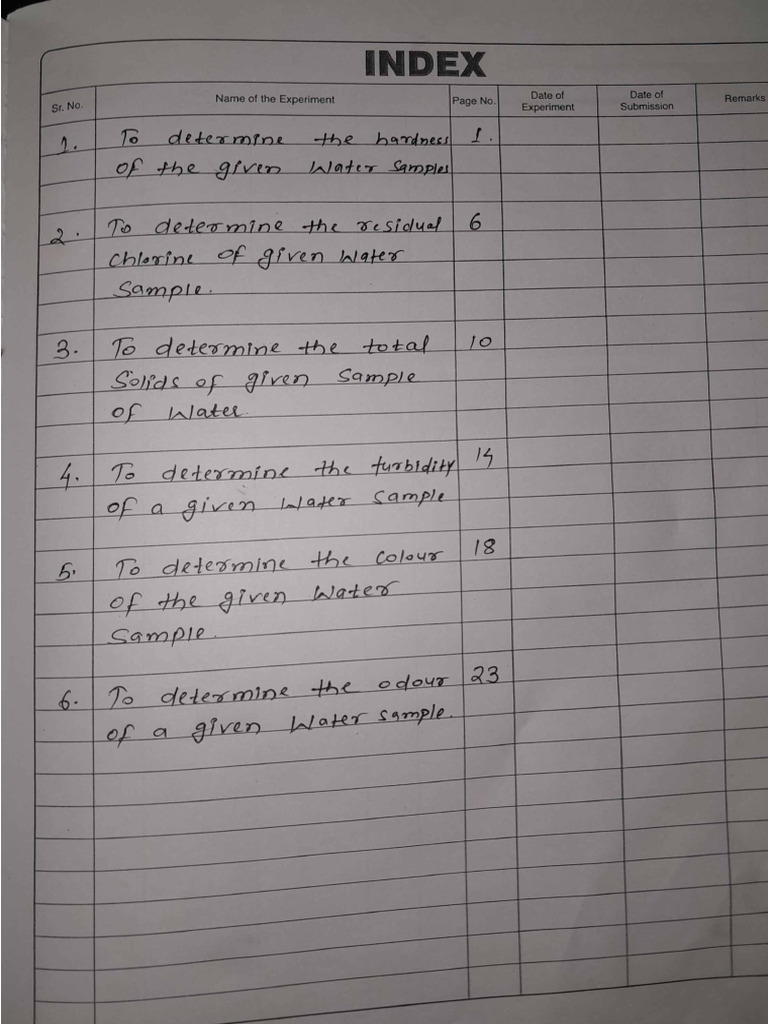 INDEX
Sr. No. Name of the Experiment Page No. Date of Experiment Date of Submission Remarks
1. To determine the hardness 1.
of the given Water Samples
2. To determine the residual 6
Chlorine of given Water
Sample.
3. To determine the total 10
Solids of given Sample
of Water.
4. To determine the turbidity 14
of a given Water Sample
5. To determine the colour 18
of the given Water
Sample.
6. To determine the odour 23
of a given Water sample.